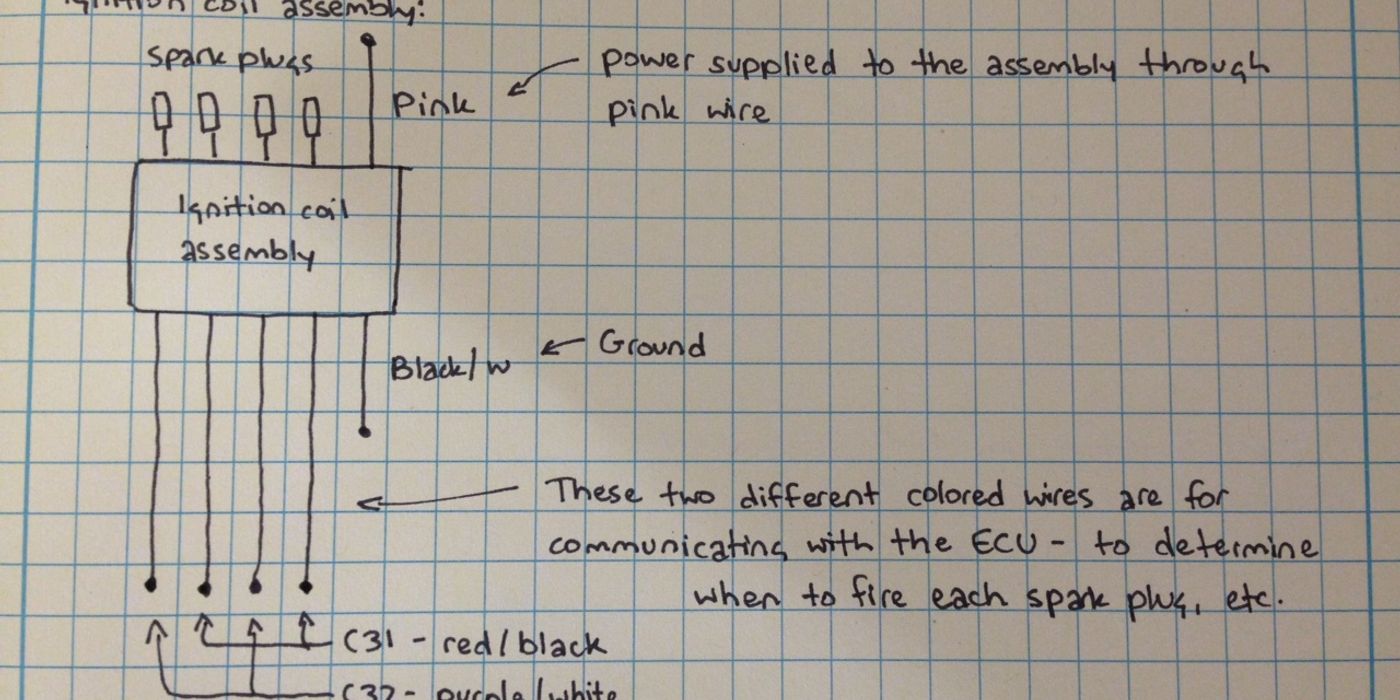 Ignition coil assembly:
spark plugs
Pink
power supplied to the assembly through
pink wire
Ignition coil
assembly
Black/w
Ground
These two different colored wires are for
communicating with the ECU - to determine
when to fire each spark plug, etc.
C31 - red/black
C32 - purple/white